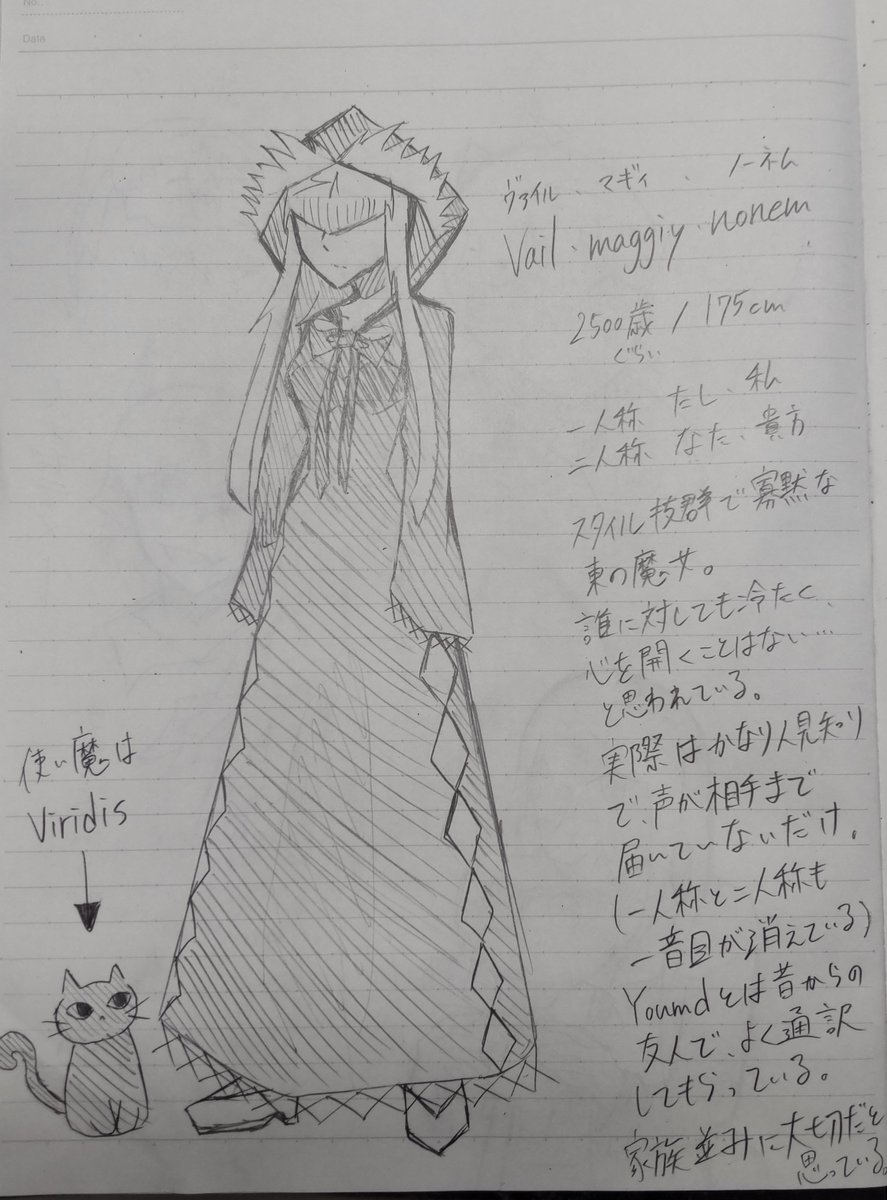 No..
Data
ヴァイル、マギィ、ノーネム
Vail、maggiy、nonem
2500歳 / 175cm
ぐらい
一人称 たし、私
二人称 なた、貴方
スタイル抜群で寡黙な
東の魔女。
誰に対しても冷たく、
心を開くことはない…
と思われている。
実際はかなり人見知り
で、声が相手まで
届いていないだけ。
(一人称と二人称も
一音目が消えている)
Youmdとは昔からの
友人で、よく通訳
してもらっている。
家族並みに大切だと
思っている。
使い魔は
Viridis